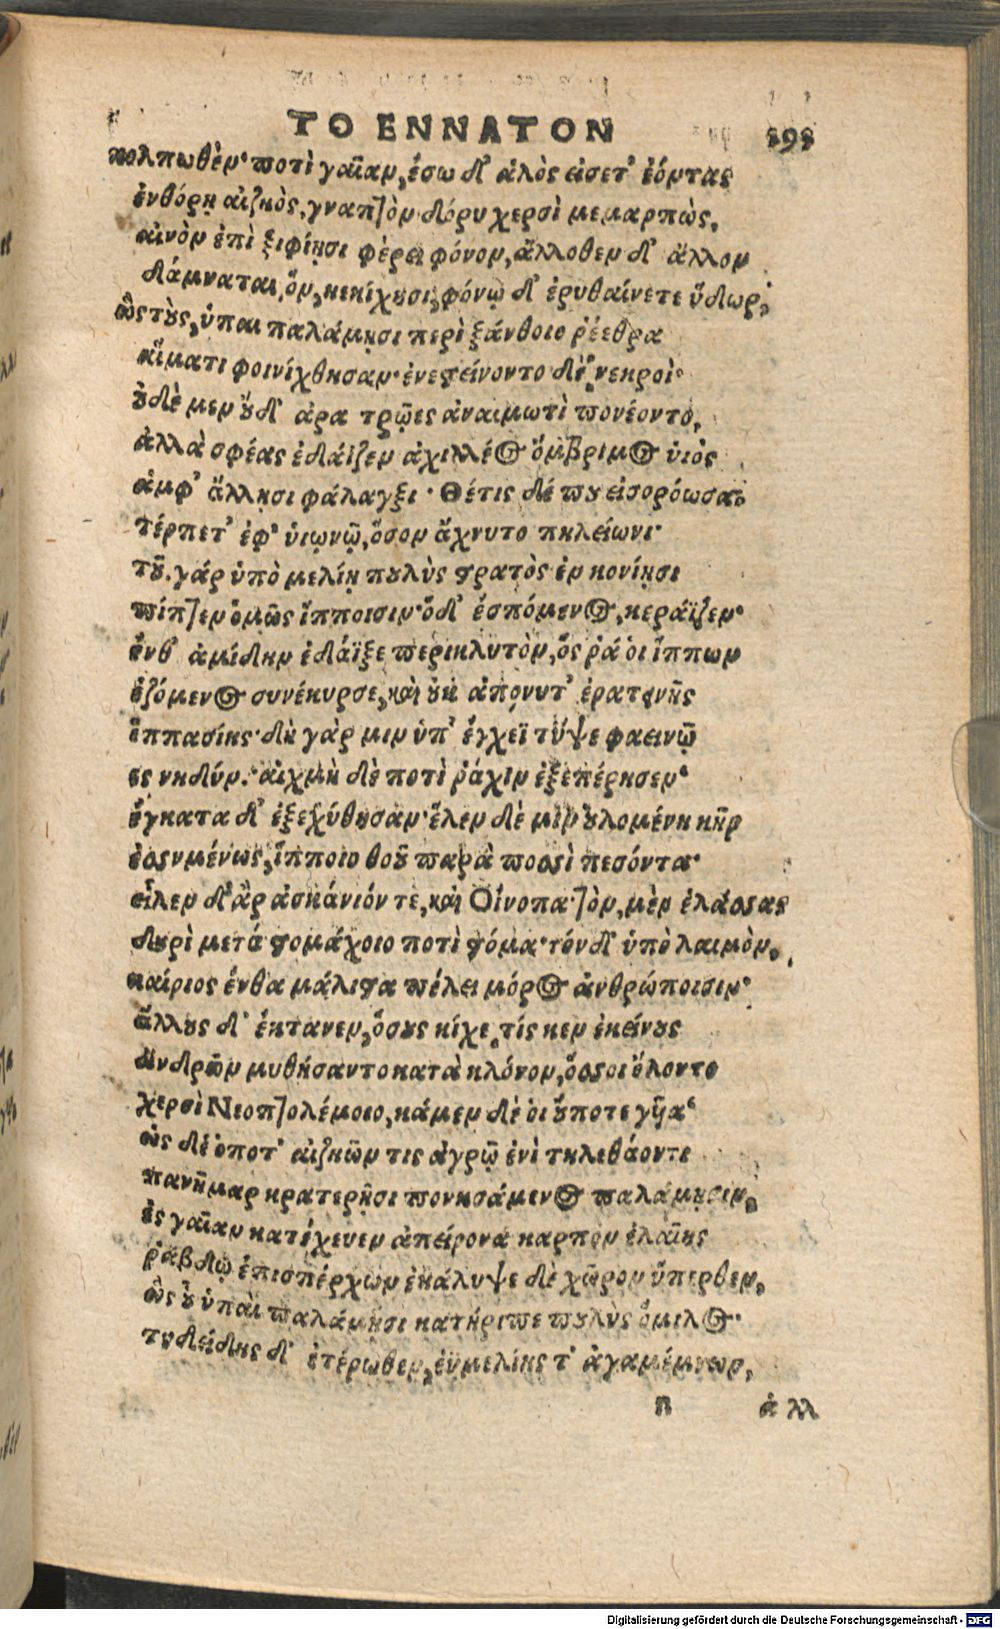 ΤΟ ΕΝΝΑΤΟΝ 193
κολπωθὲν· ποτὶ γαῖαν, ἔσω δ' ἁλὸς εἰσετ' ἐόντας
ἐνθόρῃ αἰζηὸς, γναπτὸν δόρυ χερσὶ μεμαρπὼς,
αἰνὸν ἐπὶ ξιφίῃσι φέρει φόνον, ἄλλοθεν δ' ἄλλον
δάμναται, ὅν, κεκίχησι, φόνῳ δ' ἐρυθαίνετε ὕδωρ,
ὣς τοὺς, ὑπαι παλάμῃσι περὶ ξάνθοιο ῥέεθρα
αἵματι φοινίχθησαν· ἐνεστείνοντο δὲ νεκροὶ·
οὐδὲ μεν οὐδ' ἄρα τρῶες ἀναιμωτὶ πονέοντο,
ἀλλὰ σφέας ἐδάϊζεν ἀχιλλέος ὄμβριμος υἱός
ἀμφ' ἄλλῃσι φάλαγξι · Θέτις δέ που εἰσορόωσα
τέρπετ' ἐφ' υἱωνῷ, ὅσον ἄχνυτο πηλείωνι·
τοῦ. γάρ ὑπὸ μελίῃ πουλὺς στρατὸς ἐν κονίῃσι
πίπτεν ὁμῶς ἵπποισιν· ὅδ' ἑσπόμενος, κεράϊζεν·
ἔνθ' ἀμίδην ἐδάϊξε περικλυτὸν, ὅς ῥά οἱ ἵππων
ἑζόμενος συνέκυρσε, καὶ οὐκ ἀπόνητ' ἐρατεινῆς
ἱππασίης· δὴ γὰρ μιν ὑπ' ἔγχεϊ τύψε φαεινῷ
ες νηδύν. αἰχμὴ δὲ ποτὶ ῥάχιν ἐξεπέρησεν·
ἔγκατα δ' ἐξεχύθησαν· ἕλεν δὲ μιν οὐλομένη κῆρ
ἐσσυμένως, ἵπποιο θοοῦ παρὰ ποσσὶ πεσόντα·
εἷλεν δ' ἂρ ἀσκάνιόν τε, καὶ Οἴνοπα· τὸν, μὲν ἐλάσσας
δουρὶ μετά στομάχοιο ποτὶ στόμα· τόν δ' ὑπὸ λαιμὸν,
καίριος ἔνθα μάλιστα πέλει μόρος ἀνθρώποισιν·
ἄλλους δ' ἔκτανεν, ὅσους κίχε, τίς κεν ἐκείνους
ἀνδρῶν μυθήσαντο κατὰ κλόνον, ὅσσοι ὄλοντο
χερσὶ Νεοπτολέμοιο, κάμεν δέ οἱ οὔποτε γῦα·
ὡς δέ ὁποτ' αἰζηῶν τις ἀγρῷ ἐνὶ τηλεθάοντι
πανῆμαρ κρατερῇσι πονησάμενος παλάμῃσιν,
ἐς γαῖαν κατέχευεν ἀπείρονα καρπὸν ἐλαίης
ῥάβδῳ ἐπισπέρχων ἐκάλυψε δὲ χῶρον ὕπερθεν,
ὣς οὗ ὑπὰι παλάμῃσι κατήριπε πουλὺς ὅμιλος·
τυδείδης δ' ἑτέρωθεν, ἐϋμελίης τ' ἀγαμέμνων,
n ἀλλ
Digitalisierung gefördert durch die Deutsche Forschungsgemeinschaft - DFG